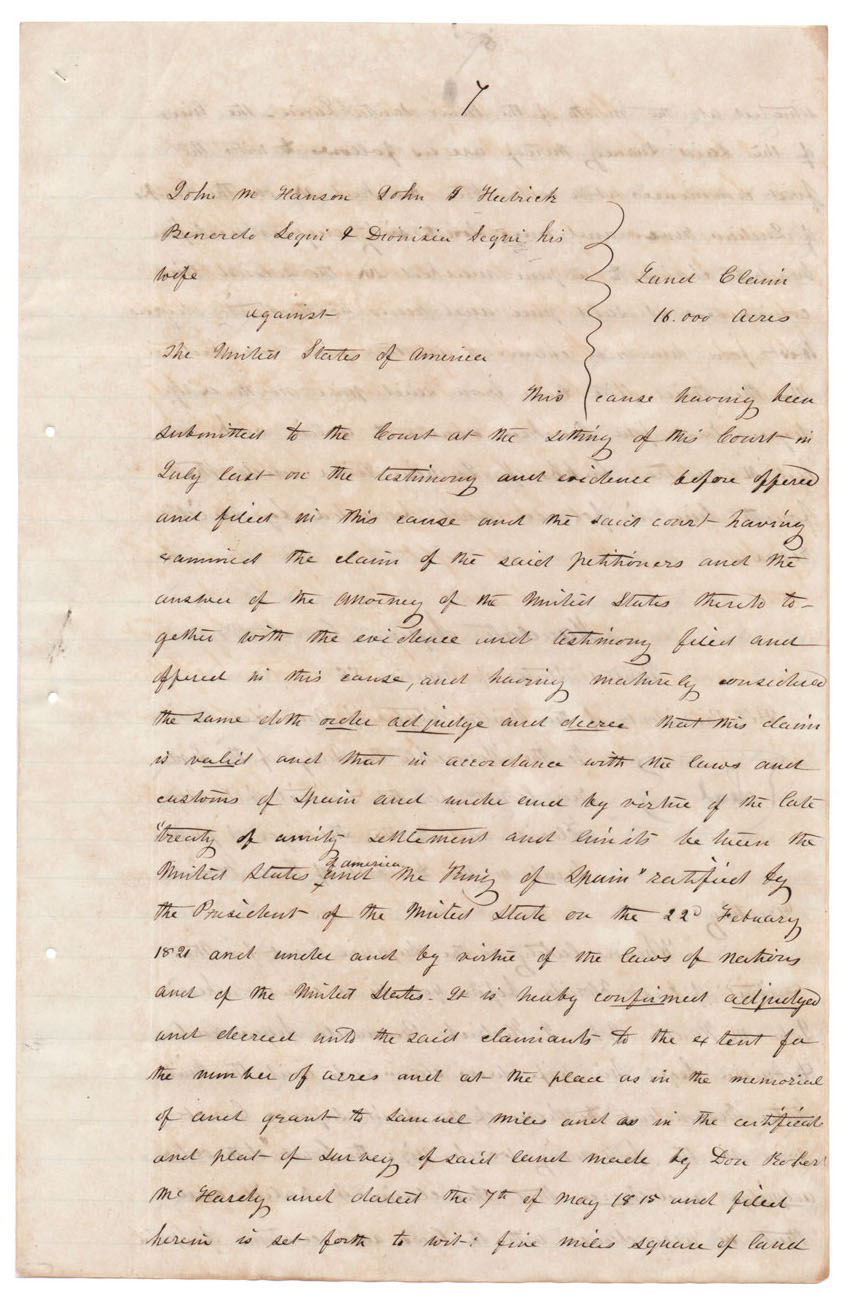 7
John M Hanson John J Hedrick
Benereto Segui & Dionisia Segui his
wife
Land Claim
against
16.000 Acres
The United States of America
This cause having been
submitted to the Court at the sitting of this Court in
July last on the testimony and evidence before offered
and filed in this cause and the said court having
examined the claim of the said petitioners and the
answer of the Attorney of the United States thereto to-
gether with the evidence and testimony filed and
offered in this cause, and having maturely considered
the same doth order adjudge and decree that this claim
is valid and that in accordance with the laws and
customs of Spain and under and by virtue of the late
"treaty of amity settlement and limits between the
United States of america and the King of Spain" ratified by
the President of the United State on the 22d Febuary
1821 and under and by virtue of the laws of nations
and of the United States. It is hereby confirmed adjudged
and decreed unto the said claimants to the extent for
the number of acres and at the place as in the memorial
of and grant to Samuel Miles and as in the certificate
and plat of survey of said land made by Don Robert
McHardy and dated the 7th of May 1818 and filed
herein is set forth to wit: five miles square of land